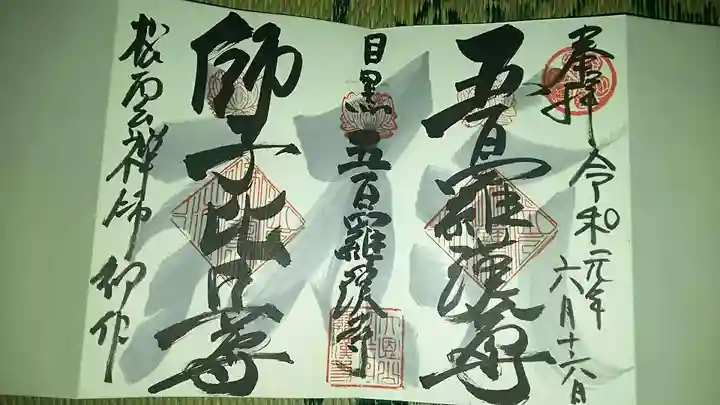 奉拝
令和元年
六月十六日
五百羅漢尊
目黒
五百羅漢寺
師子比丘尊
松雲禅師
御作